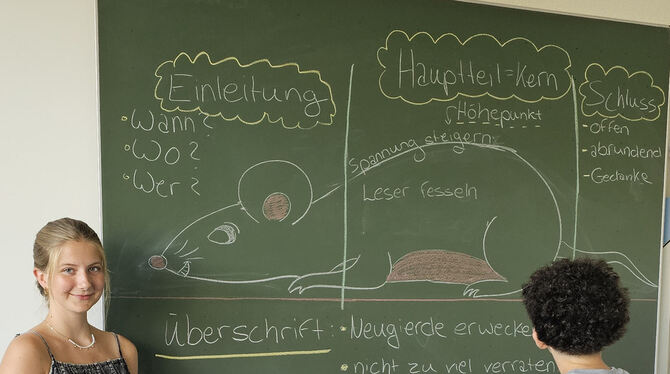 Einleitung
• Wann?
• Wo?
• Wer?
Hauptteil=Kern
Höhepunkt
Spannung steigern
Leser fesseln
Schluss
- offen
- abrundend
- Gedanke
Überschrift: • Neugierde erwecken
• nicht zu viel verraten